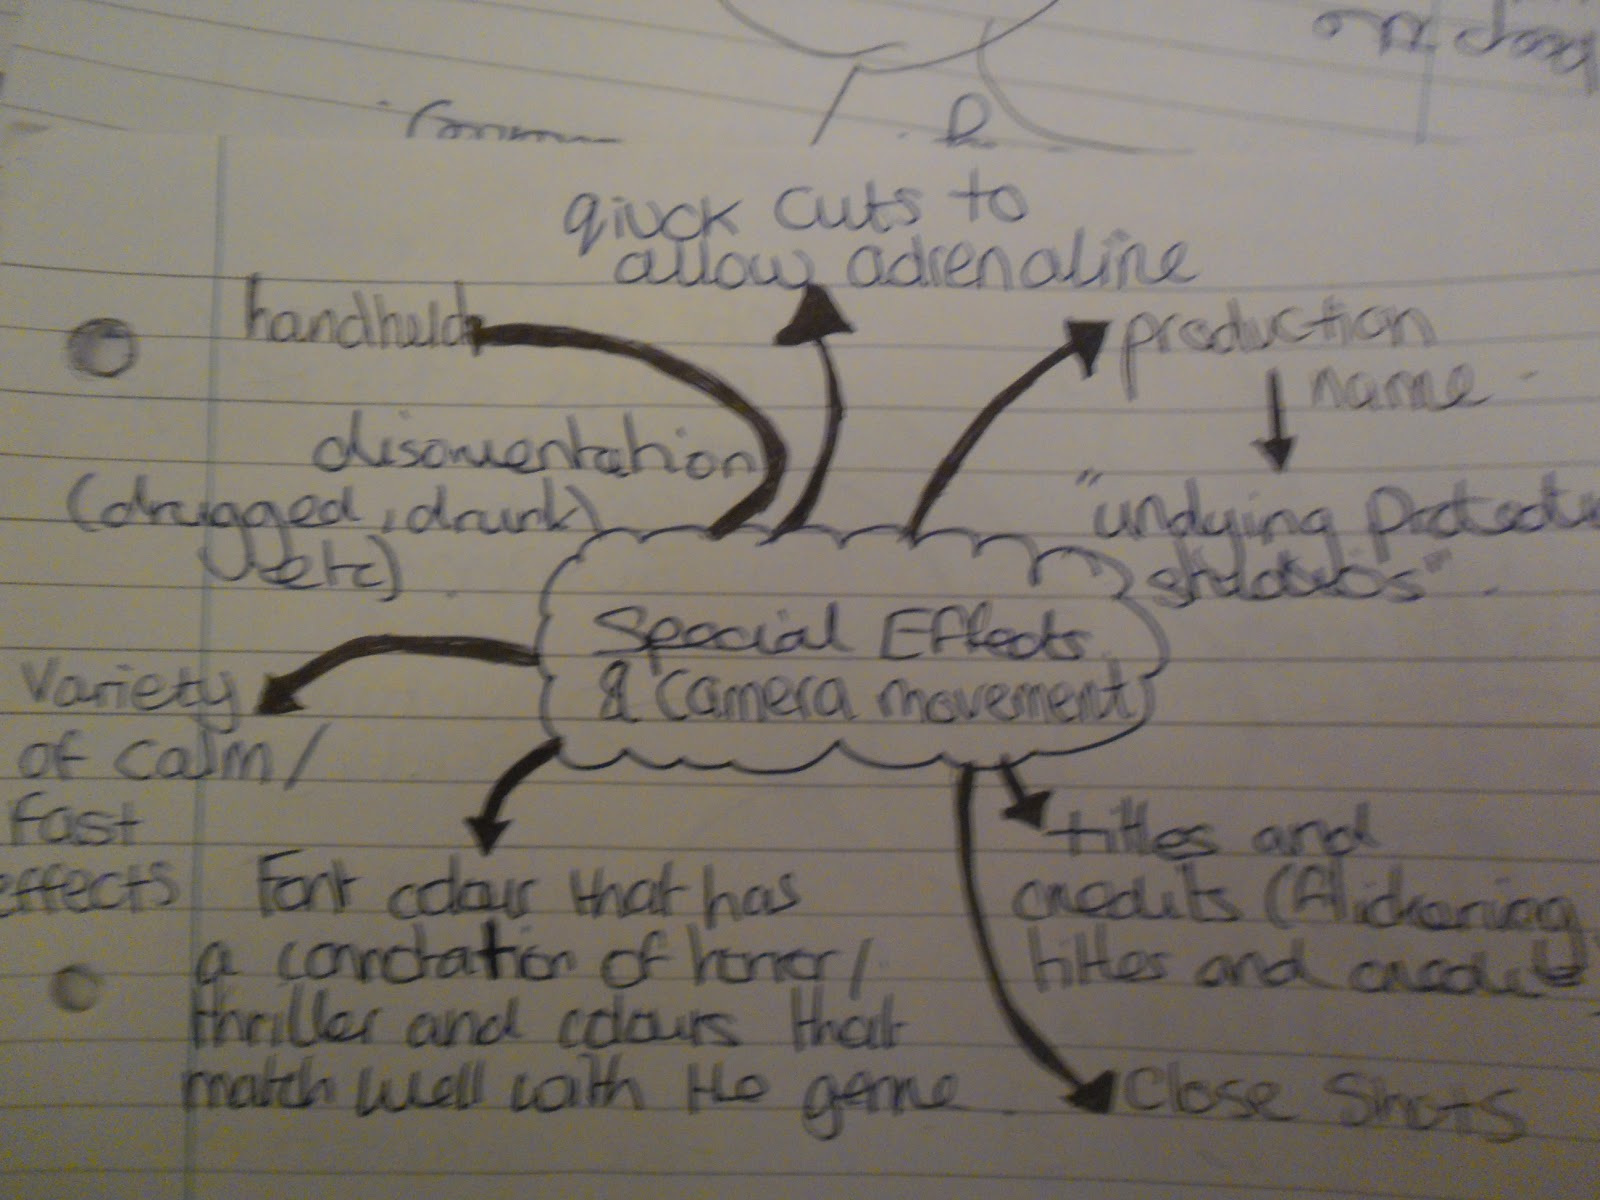 qiuck cuts to
allow adrenaline
handheld
production
name
disorientation
(drugged, drunk)
etc)
"undying
studios"
Special Effects
& Camera movement
Variety
of calm/
fast
effects
titles and
credits (flickering
titles and credits
Font colour that has
a connotation of horror/
thriller and colours that
match well with the genre.
Close Shots